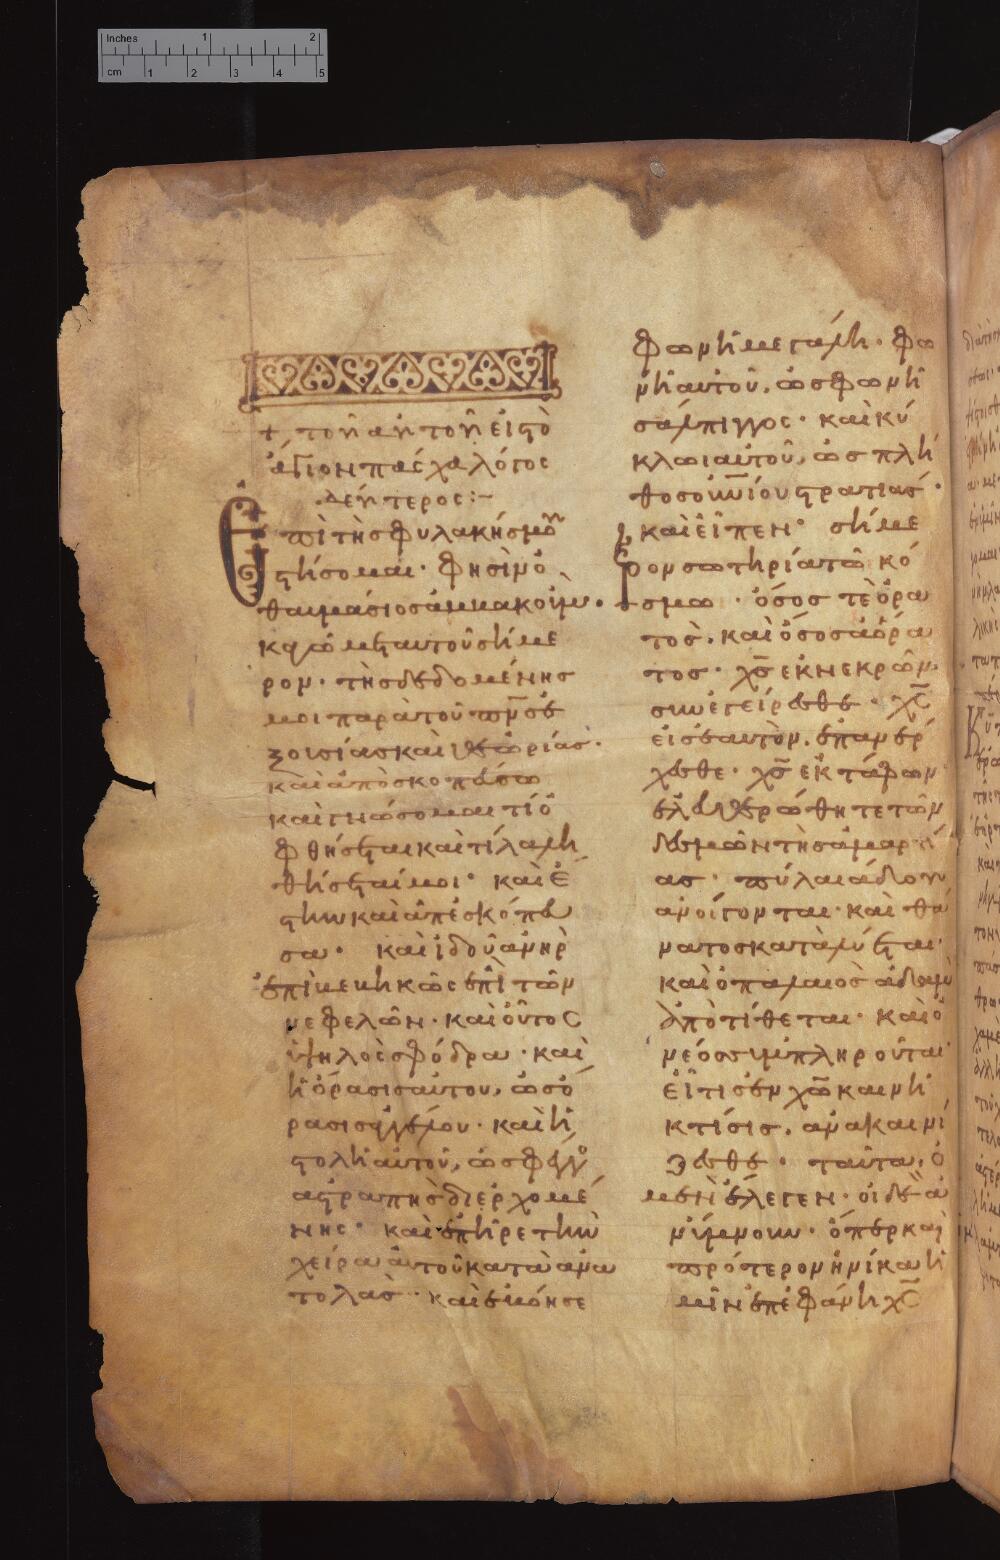 + τοῦ αὐτοῦ εἰς τὸ
ἅγιον πάσχα λόγος
δεύτερος :~
Ἐπὶ τῆς φυλακῆς μου
στήσομαι · φησὶν ὁ
θαυμάσιος ἀμβακούμ ·
κἀγὼ μετ αὐτοῦ σήμε
ρον · τῆς δεδομένης
μοι παρὰ τοῦ πνς ἐ
ξουσίας καὶ θεωρίας ·
καὶ ἀποσκοπεύσω
καὶ γνώσομαι τί ὀ
φθήσεται καὶ τί λαλη
θήσεταί μοι · καὶ ἔ
στην καὶ ἀπεσκόπευ
σα · καὶ ἰδοὺ ἀνὴρ
ἐπιβεβηκὼς ἐπὶ τῶν
νεφελῶν · καὶ οὗτος
ὑψηλὸς σφόδρα · καὶ
ἡ ὅρασις αὐτοῦ, ὡς ὅ
ρασις ἀγγέλου · καὶ ἡ
στολὴ αὐτοῦ, ὡς φέγγος
ἀστραπῆς διερχομέ
νης · καὶ ἐπῆρε τὴν
χεῖρα αὐτοῦ κατὰ ἀνα
τολάς · καὶ ἐβόησε
φωνῇ μεγάλῃ · φω
νὴ αὐτοῦ, ὡς φωνὴ
σάλπιγγος · καὶ κύ
κλωι αὐτοῦ, ὡς πλῆ
θος οὐνίου στρατιᾶς ·
καὶ εἶπεν · σήμε
ρον σωτηρία τῶ κό
σμω · ὅσος τε ὁρα
τὸς, καὶ ὅσος ἀόρα
τος · χς ἐκ νεκρῶν
συνεγείρεσθε · χς
εἰς ἑαυτὸν, ἐπανέρ
χεσθε · χς ἐκ τάφων
ἐλευθερώθητε τῶν
δεσμῶν τῆς ἁμαρτί
ας · πύλαι ἅδου
ἀνοίγονται · καὶ θά
νατος καταλύεται ·
καὶ ὁ παλαιὸς ἀδὰμ
ἀποτίθεται · καὶ ὁ
νέος συμπληροῦται
εἴ τις ἐν χω καινὴ
κτίσις, ἀνακαινί
ζεσθε · ταῦτα, ὁ
μὲν ἔλεγεν · οἱ δὲ ἀ
νύμνουν · ὅπερ καὶ
πρότερον ἡνίκα ἡ
μῖν ἐπεφάνη χς